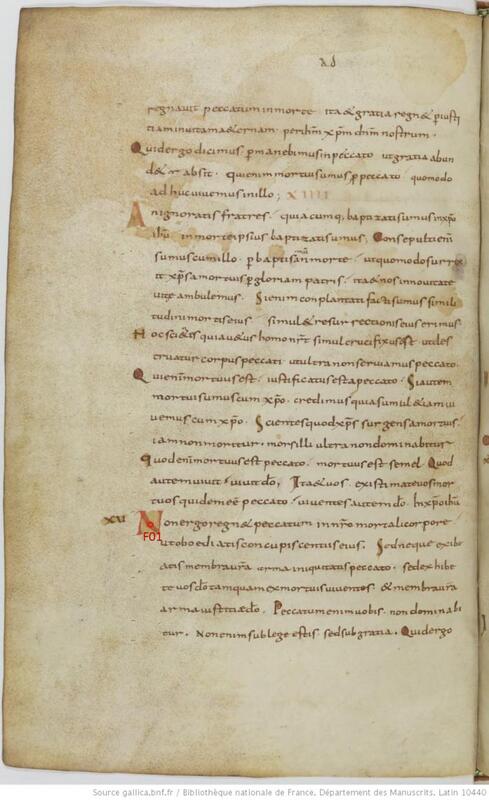 ad
regnavit peccatum in morte ita & gratia regn& p iusti
tiam in vitam a&ernam. per ihm xpm dnm nostrum.
Quid ergo dicimus pmanebimus in peccato ut gratia abun
d& absit. qui enim mortui sumus peccato quomodo
adhuc vivemus in illo; XIIII
An ignoratis fratres. quia cumq; baptizati sumus in xpo
ihu in morte ipsius baptizati sumus, Consepulti enim
sumus cum illo. p baptismum in morte. ut quomodo surrex
it xps a mortuis p gloriam patris. ita & nos in novitate
vite ambulemus. Si enim conplantati facti sumus simili
tudini mortis eius. simul & resurrectionis eius erimus
Hoc scientes quia v&us homo nr simul crucifixus est ut des
truatur corpus peccati ut ultra non serviamus peccato.
Qui enim mortuus est. iustificatus est a peccato. Si autem
mortui sumus cum xpo. credimus quia simul & iam vi
vemus cum xpo. Scientes quod xps surgens a mortuis
iam non moritur. mors illi ultra non dominabitur
Quod enim mortuus est peccato. mortuus est semel. Quod
autem vivit. vivit do, Ita & vos existimate vos mor
tuos quidem ee peccato. viventes autem do. In xpo ihu
XV Non ergo regn& peccatum in vro mortali corpore
F01
ut oboediatis concupiscentiis eius. Sed neque exibe
atis membra vra arma iniquitatis peccato. sed exhibe
te vos do tamquam ex mortuis viventes. & membra vra
arma iustitiae do. Peccatum enim vobis non dominabi
tur. Non enim sub lege estis sed sub gratia. Quid ergo
Source gallica.bnf.fr / Bibliothèque nationale de France. Département des Manuscrits. Latin 10440